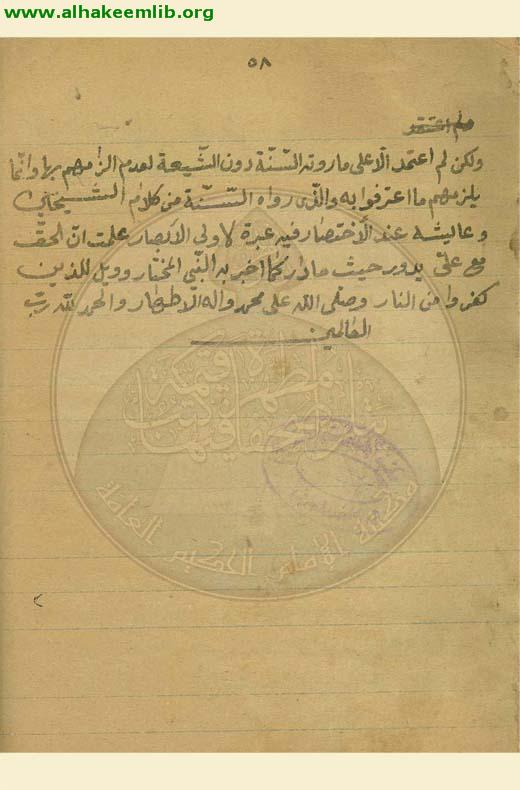 www.alhakeemlib.org
٥٨
ولكن لم اعتمد الّا على ما روته السّنّة دون الشّيعة لعدم الزامهم بها وانّما
يلزمهم ما اعترفوا به والّذى رواه السّنّة من كلام الشيخين
وعايشة عند الاختصار فيه عبرة لاولى الابصار علمت انّ الحقّ
مع علىّ يدور حيث مادار كما اخبر به النّبي المختار وويل للذين
كفروا من النار وصلّى اللّه على محمد واله الاطهار والحمد للّه ربّ
العالمين
مكتبة الإمام الحكيم العامة